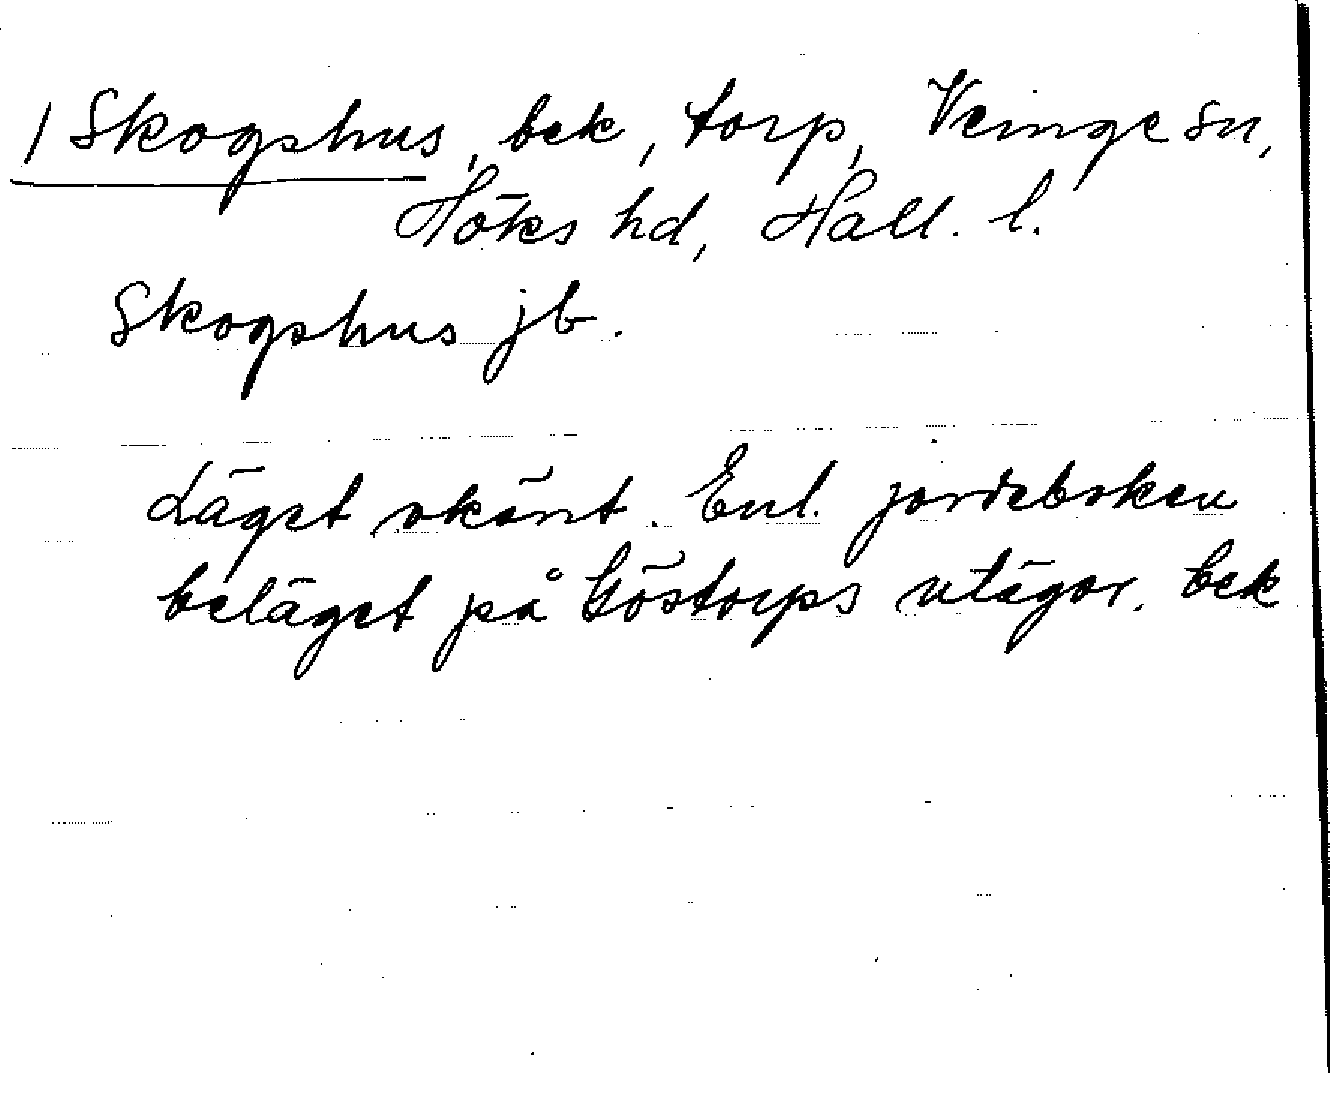 / Skogshus, bek, torp, Veinge sn,
Höks hd, Hall. l.
Skogshus jb.
Läget okänt. Enl. jordeboken
beläget på Göstorps utägor. bek